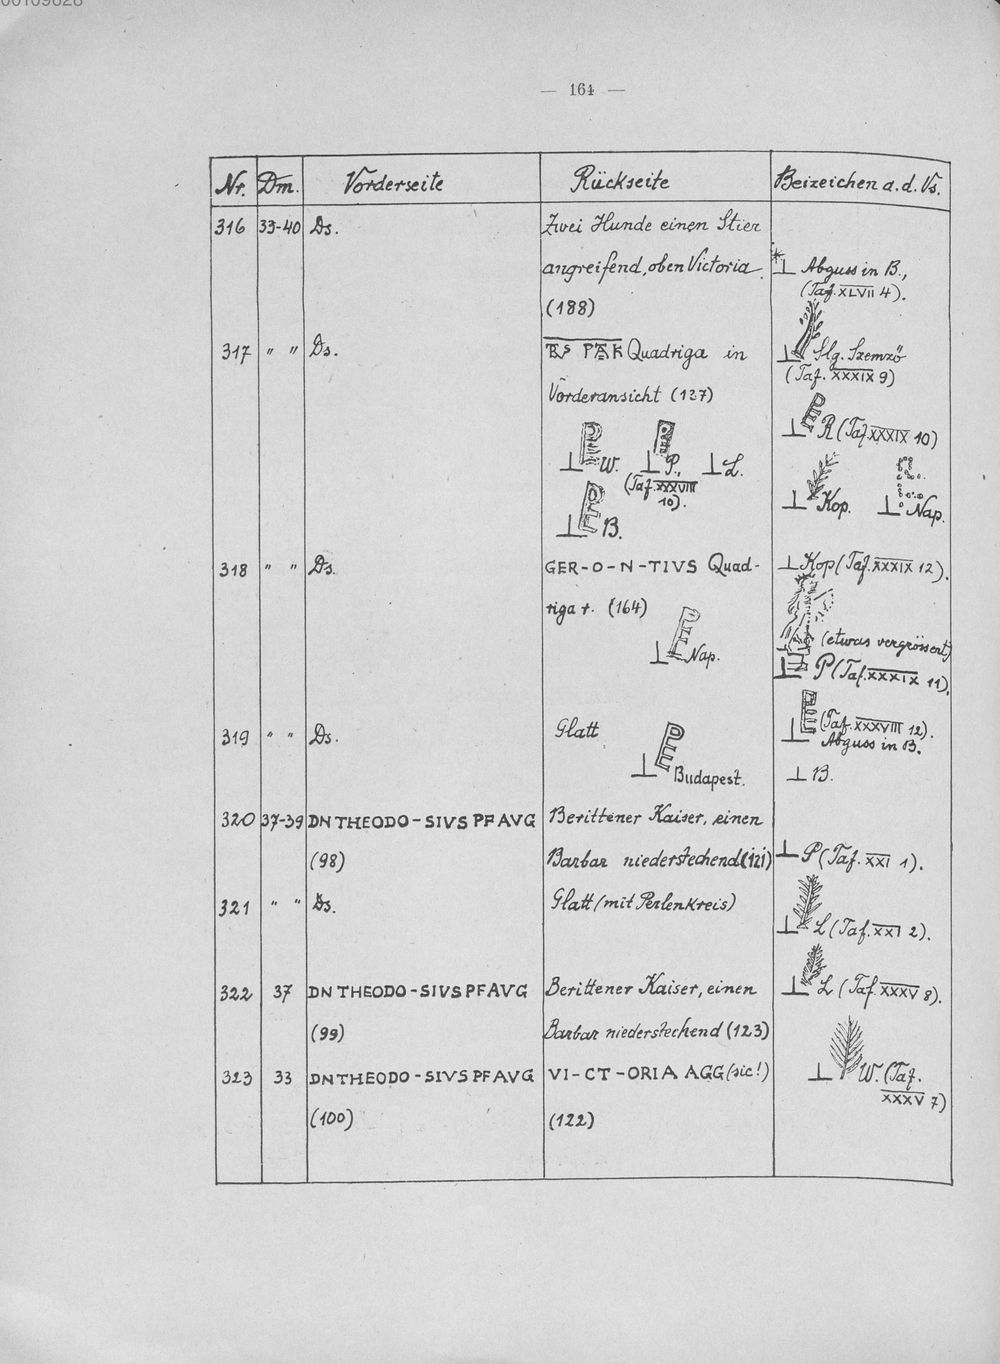 00109628
— 164 —
Nr. Dm. Vorderseite Rückseite Beizeichen a. d. Vs.
316 33-40 Ds. Zwei Hunde einen Stier
angreifend, oben Victoria. Abguss in B.,
(Taf. XLVII 4).
(188)
317 " " Ds. Quadriga in Slg. Szemzö
(Taf. XXXIX 9)
Vorderansicht (127)
PE R (Taf. XXXIX 10)
PE W. PE P., L. Kop. Nap.
(Taf. XXXVIII
10).
PE B.
318 " " Ds. GER-O-N-TIVS Quad- Kop (Taf. XXXIX 12).
riga r. (164)
(etwas vergrössert)
PE Nap. P (Taf. XXXIX 11).
319 " " Ds. Glatt PE (Taf. XXXVIII 12).
Abguss in B.
PE Budapest. B.
320 37-39 DN THEODO-SIVS PF AVG Berittener Kaiser, einen
(98) Barbar niederstechend (121) P (Taf. XXI 1).
321 " " Ds. Glatt (mit Perlenkreis)
L (Taf. XXI 2).
322 37 DN THEODO-SIVS PF AVG Berittener Kaiser, einen L (Taf. XXXV 8).
(99) Barbar niederstechend (123)
323 33 DN THEODO-SIVS PF AVG VI-CT-ORIA AGG (sic!) W. (Taf.
XXXV 7)
(100) (122)